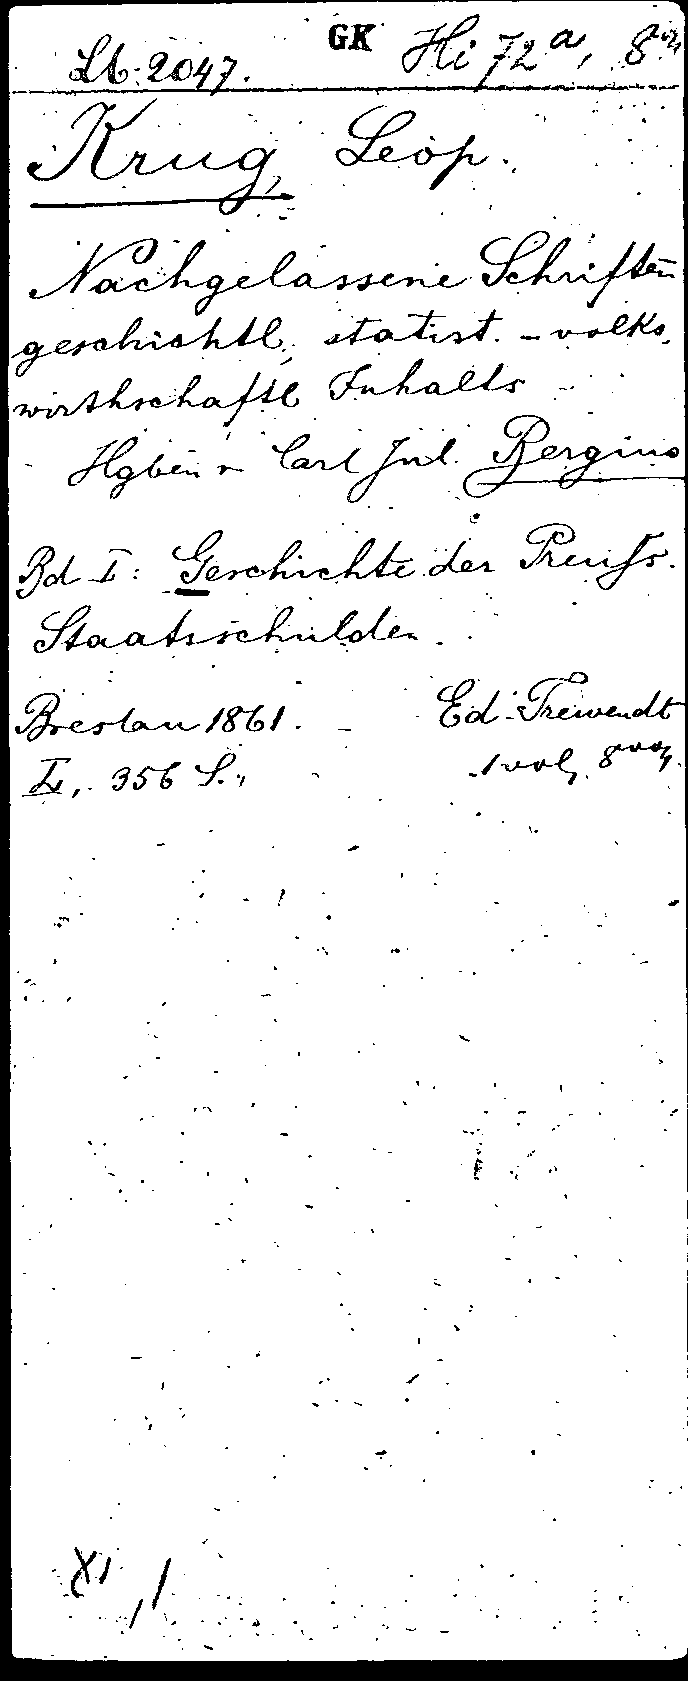 GK Hi 72a, 8vo
Lb. 2047.
Krug, Leop.
Nachgelassene Schriften
geschichtl., statist. - volks-
wirthschaftl Inhalts
Hgben v Carl Jul. Bergius
Bd I: Geschichte der Preuss.
Staatsschulden.
Breslau 1861. Ed. Trewendt
X, 356 S., 1 vol, 8vo.